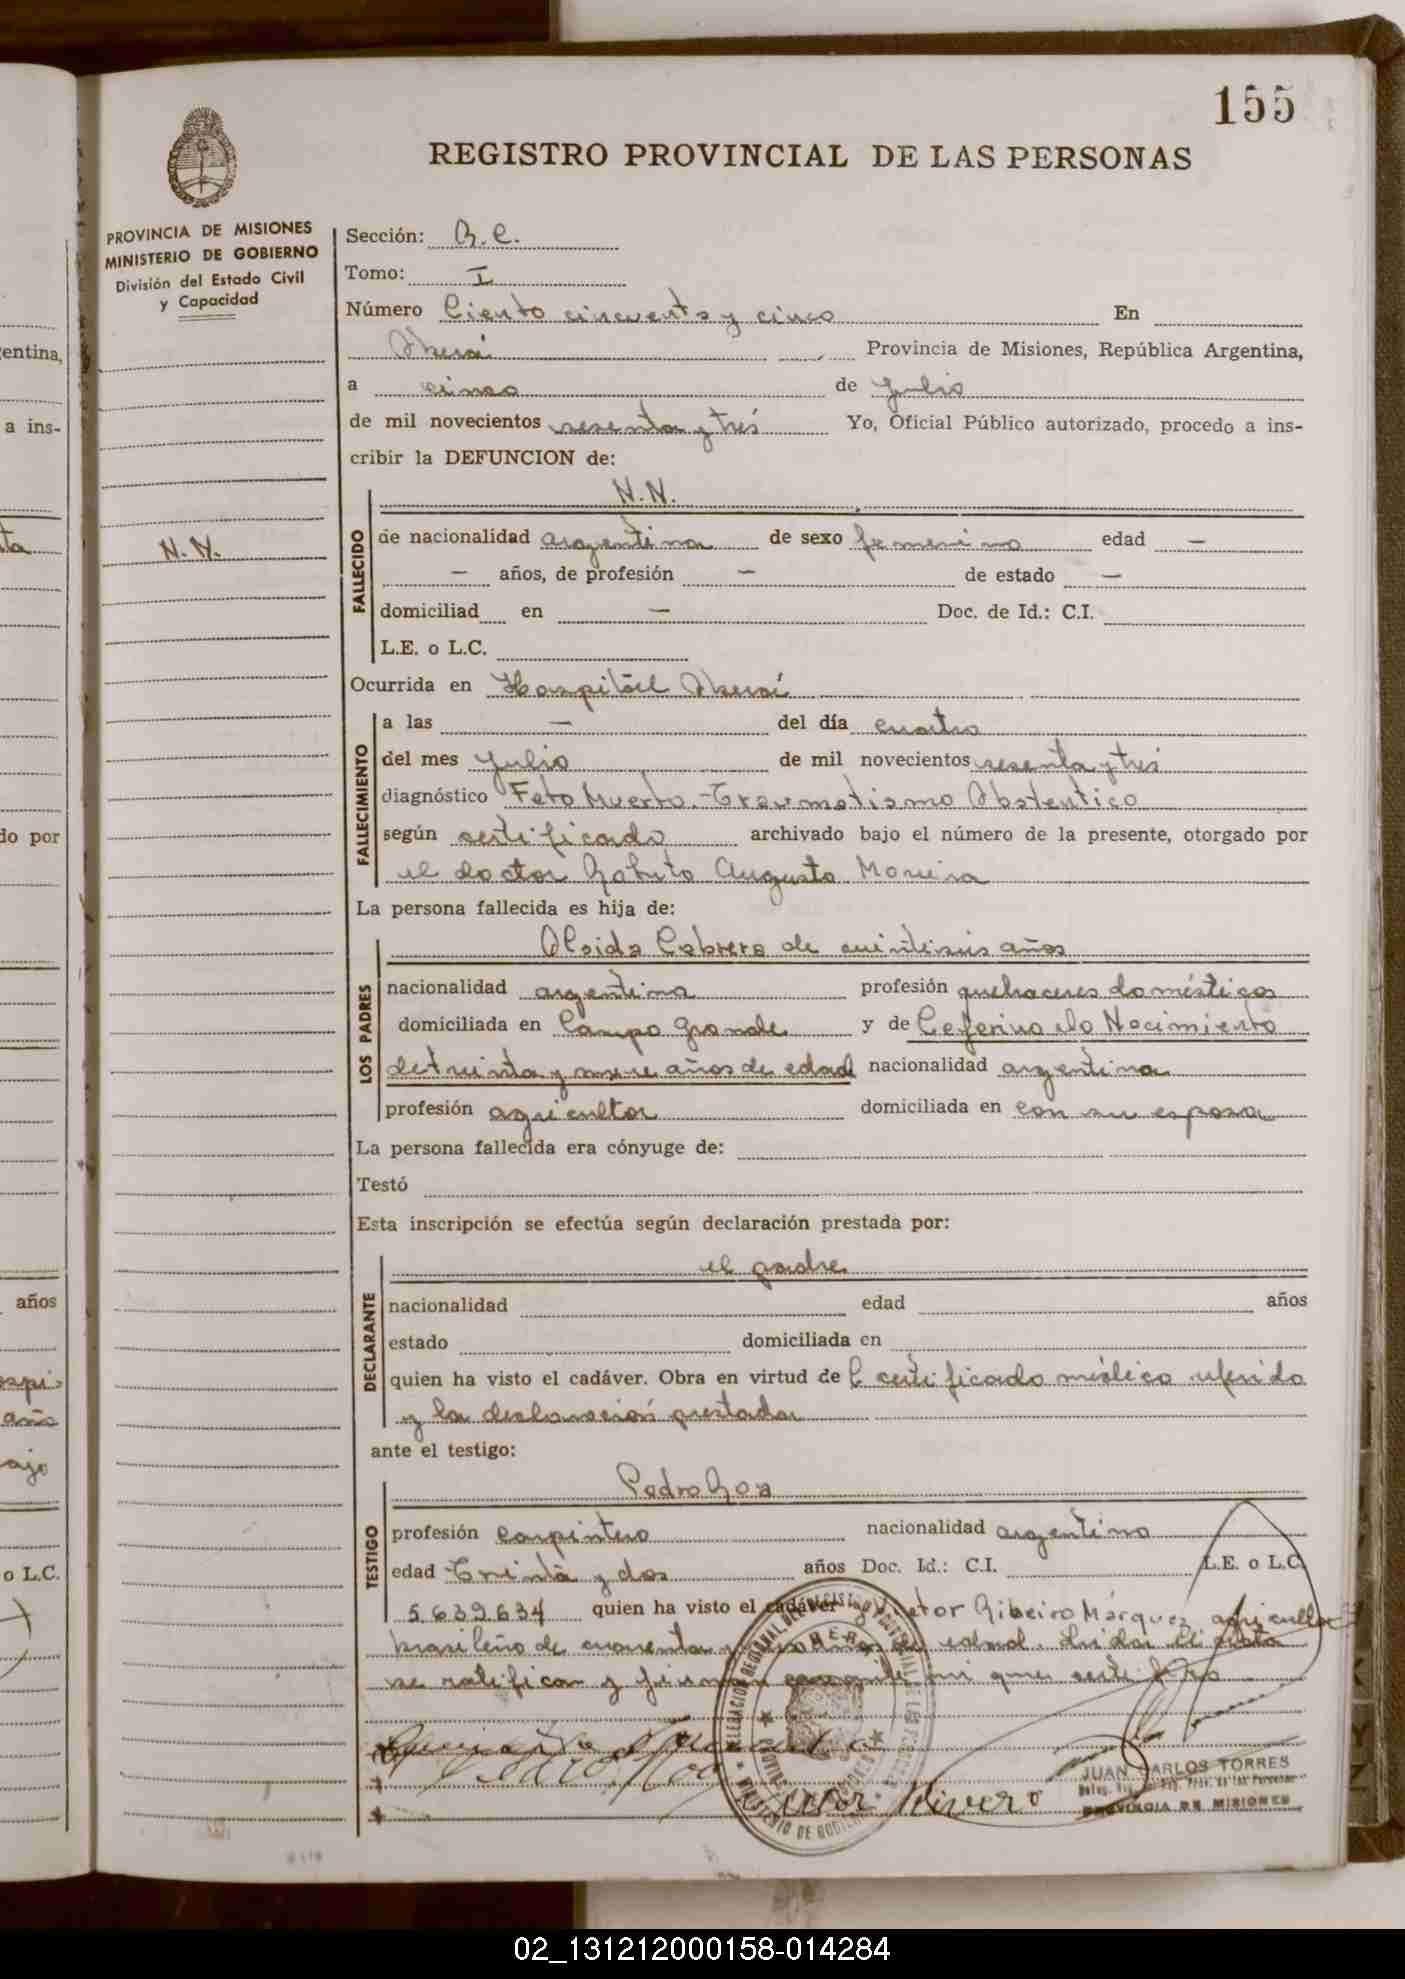 155
REGISTRO PROVINCIAL DE LAS PERSONAS
PROVINCIA DE MISIONES
MINISTERIO DE GOBIERNO
División del Estado Civil
y Capacidad
Sección:
Tomo: I
Número Ciento cincuenta y cinco En
Oberá Provincia de Misiones, República Argentina,
a cinco de julio
de mil novecientos sesenta y tres Yo, Oficial Público autorizado, procedo a ins-
cribir la DEFUNCION de:
N.N.
N.N.
FALLECIDO
de nacionalidad argentina de sexo femenino edad —
— años, de profesión — de estado —
domiciliad en — Doc. de Id.: C.I.
L.E. o L.C.
Ocurrida en Hospital Oberá
FALLECIMIENTO
a las — del día cuatro
del mes julio de mil novecientos sesenta y tres
diagnóstico Feto Muerto.-Traumatismo
según certificado archivado bajo el número de la presente, otorgado por
el doctor Augusto Moreira
La persona fallecida es hija de:
LOS PADRES
Cabrera de veintiseis años
nacionalidad argentina profesión quehaceres domésticos
domiciliada en Campo Grande y de Ceferino do Nacimiento
de treinta y nueve años de edad nacionalidad argentina
profesión agricultor domiciliada en con su esposa
La persona fallecida era cónyuge de:
Testó
Esta inscripción se efectúa según declaración prestada por:
DECLARANTE
el padre
nacionalidad edad años
estado domiciliada en
quien ha visto el cadáver. Obra en virtud de l certificado médico referido
y la declaración prestada
ante el testigo:
TESTIGO
Pedro
profesión carpintero nacionalidad argentino
edad Treinta y dos años Doc. Id.: C.I. L.E. o L.C.
5.639.634 quien ha visto el cadáver y Victor Ribeiro Márquez agricultor
brasileño de cuarenta y años de edad. Leida el acta
se ratifican y firman ante mi que certifico
Victor Rivero
JUAN CARLOS TORRES
PROVINCIA DE MISIONES
entina,
a ins-
do por
años
año
o L.C.
02_131212000158-014284